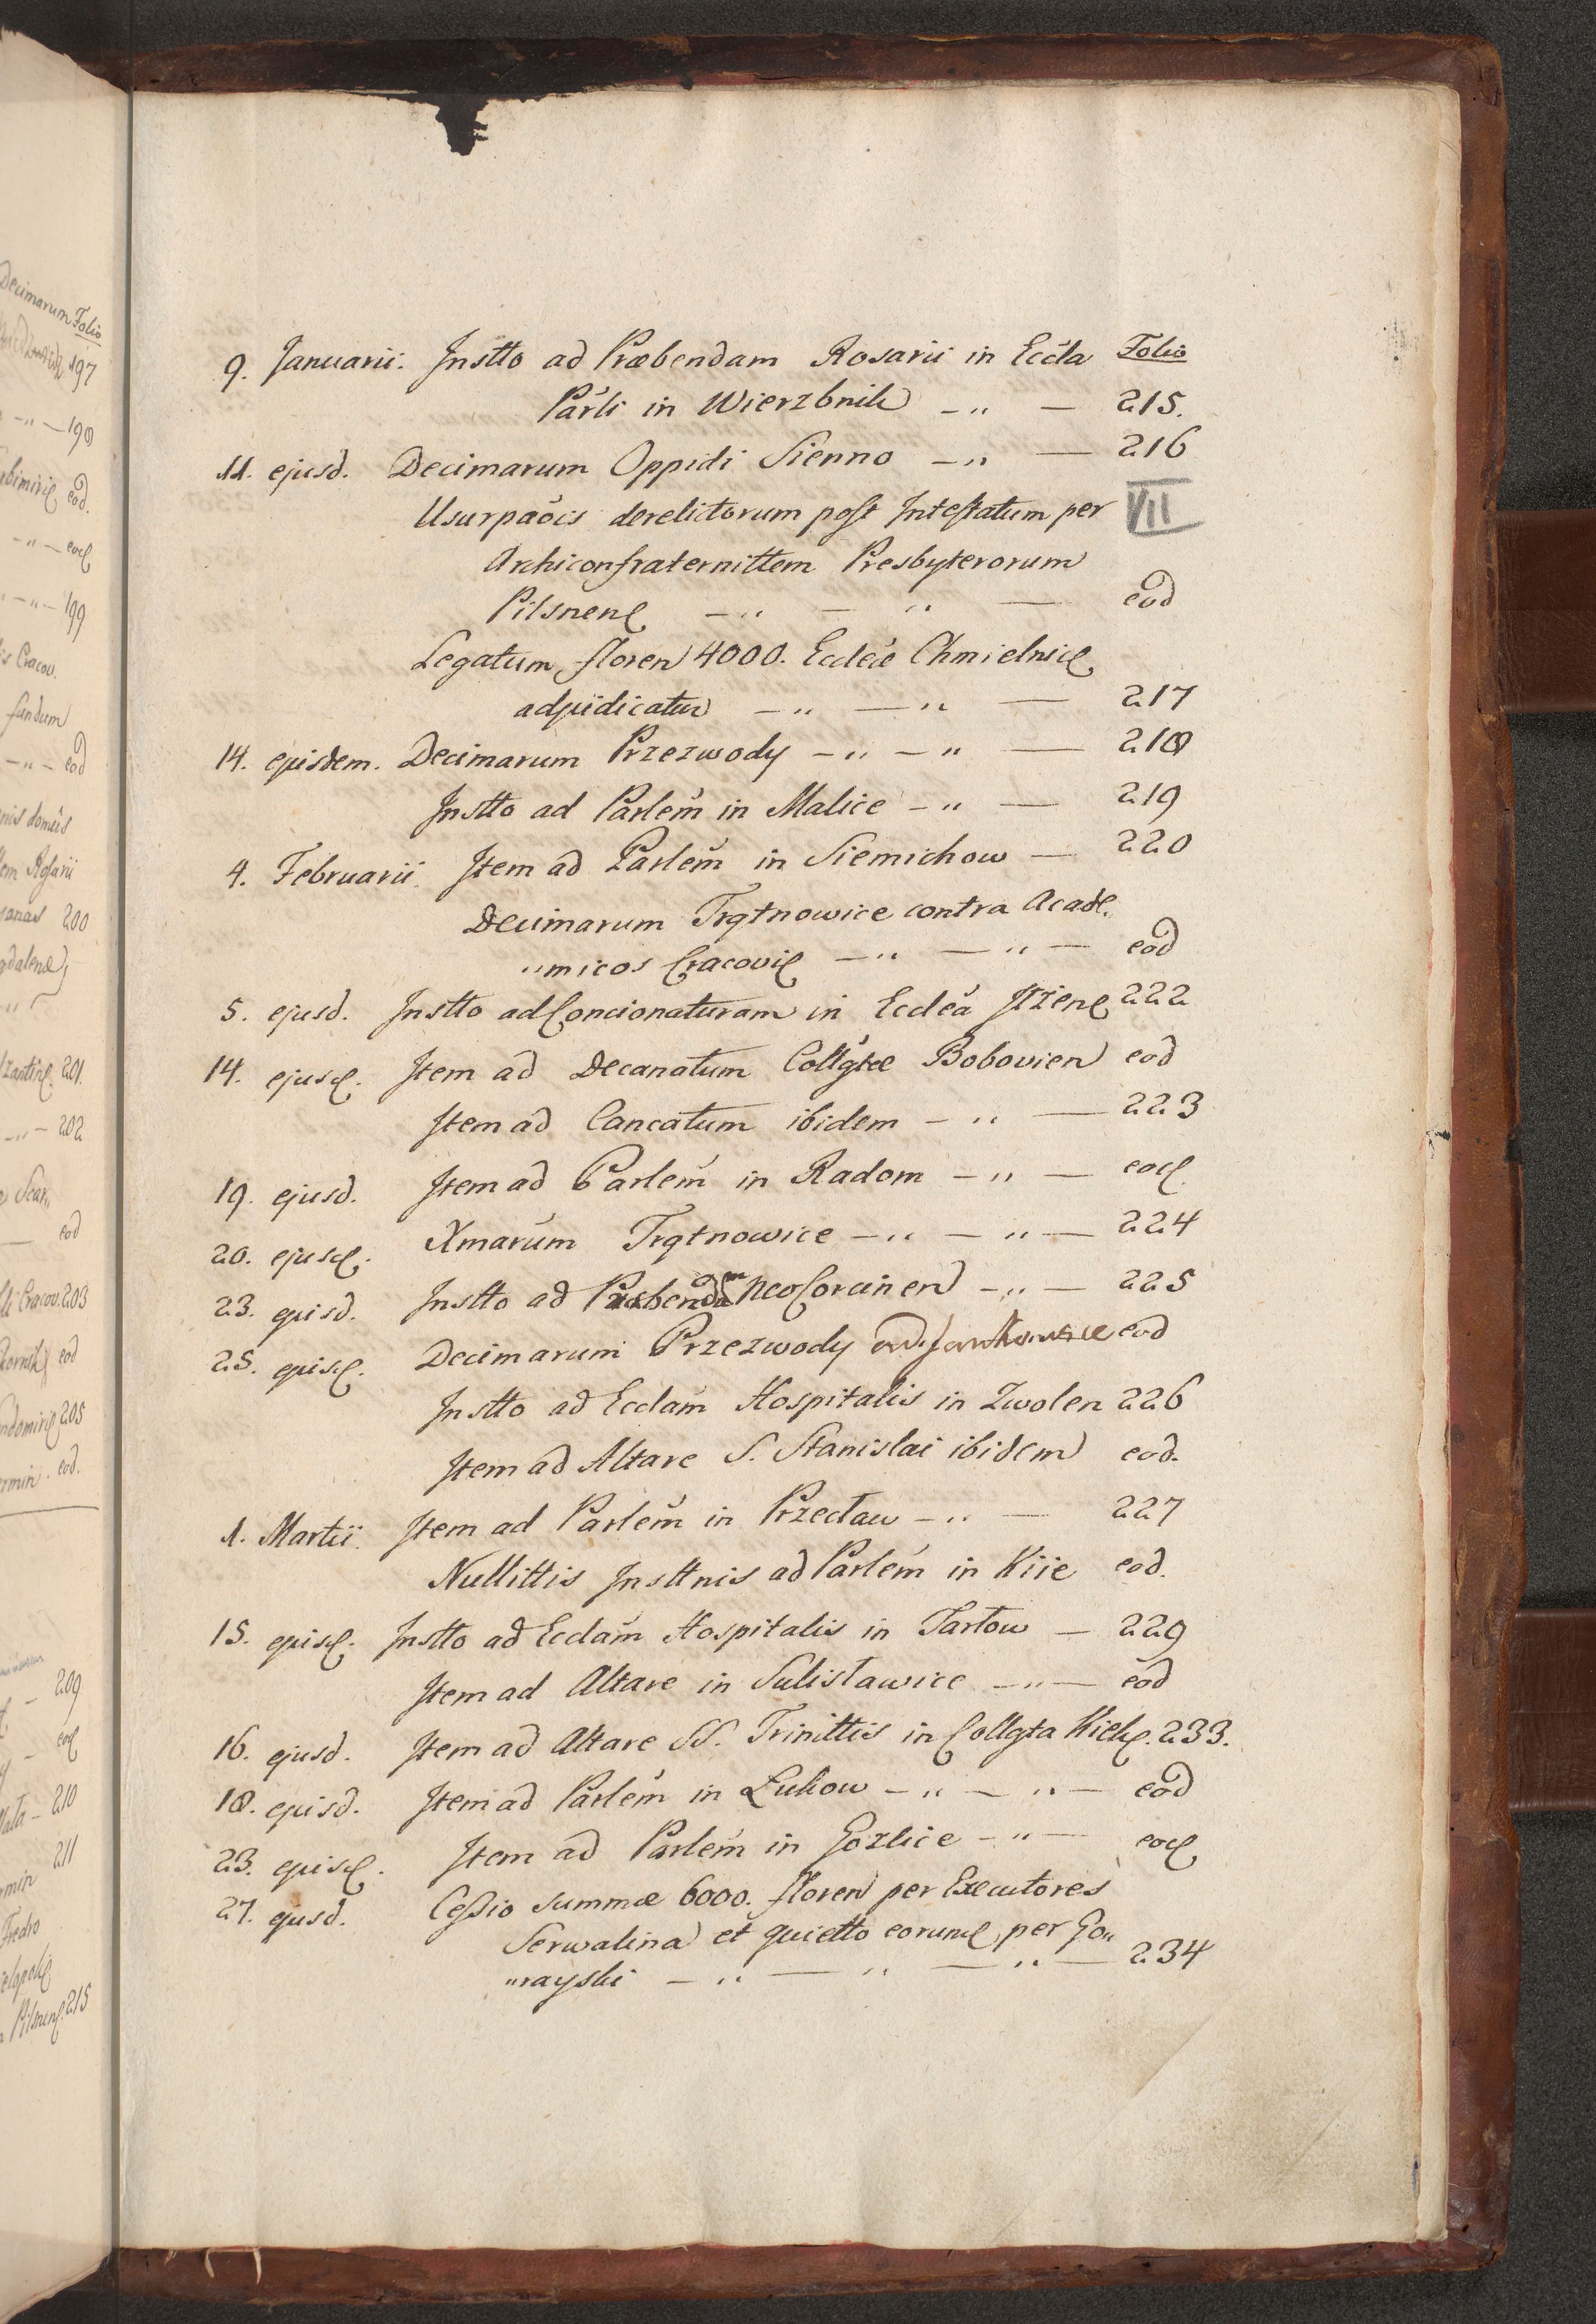 Decimarum Folio
197
190
eod.
eod
199
is Cracov.
fundum
eod
nis domus
em Rosarii
200
gdalenæ
201.
202
eod
Cracov. 203
eod
205
eod.
209
eod
210
211
Pilsnen. 215
9. Januarii. Instto ad Præbendam Rosarii in Eccla Folio
Parli in Wierzbnik -„ — 215.
11. ejusd. Decimarum Oppidi Sienno -„ — 216
Usurpaöis derelictorum post Intestatum per VII
Archiconfraternittem Presbyterorum
Pilsnen -„ — „ — eod
Legatum floren 4000. Eccleæ Chmielnic
adjudicatur -„ —„ — 217
14. ejusdem. Decimarum Przezwody -„ -„ — 218
Instto ad Parlem in Malice -„ — 219
4. Februarii. Item ad Parlem in Siemichow — 220
Decimarum Trątnowice contra Acade„
„micos Cracovi -„ —„ — eod
5. ejusd. Instto ad Concionaturam in Ecclea Ilżen 222
14. ejusd. Item ad Decanatum Collgtæ Bobovien eod
Item ad Cancatum ibidem -„ — 223
19. ejusd. Item ad Parlem in Radom -„ — eod.
20. ejusd. Xmarum Trątnowice -„ —„ — 224
23. ejusd. Instto ad Præbendam NeoCorcinen -„ — 225
25. ejusd. Decimarum Przezwody ad Jankowice eod
Instto ad Ecclam Hospitalis in Zwolen 226
Item ad Altare S. Stanislai ibidem eod.
1. Martii. Item ad Parlem in Przecław -„ — 227
Nullittis Insttnis ad Parlem in Kiie eod.
15. ejusd. Instto ad Ecclam Hospitalis in Tarłow — 229
Item ad Altare in Sulisławice -„ — eod
16. ejusd. Item ad Altare SS. Trinittis in Collgta Kielc. 233.
18. ejusd. Item ad Parlem in Łukow -„ —„ — eod
23. ejusd. Item ad Parlem in Gozlice -„ — eod
27. ejusd. Cessio summæ 6000. floren per Executores
Serwalina et quietto eorund per Go„
„rayski -„ — „ —„ — 234